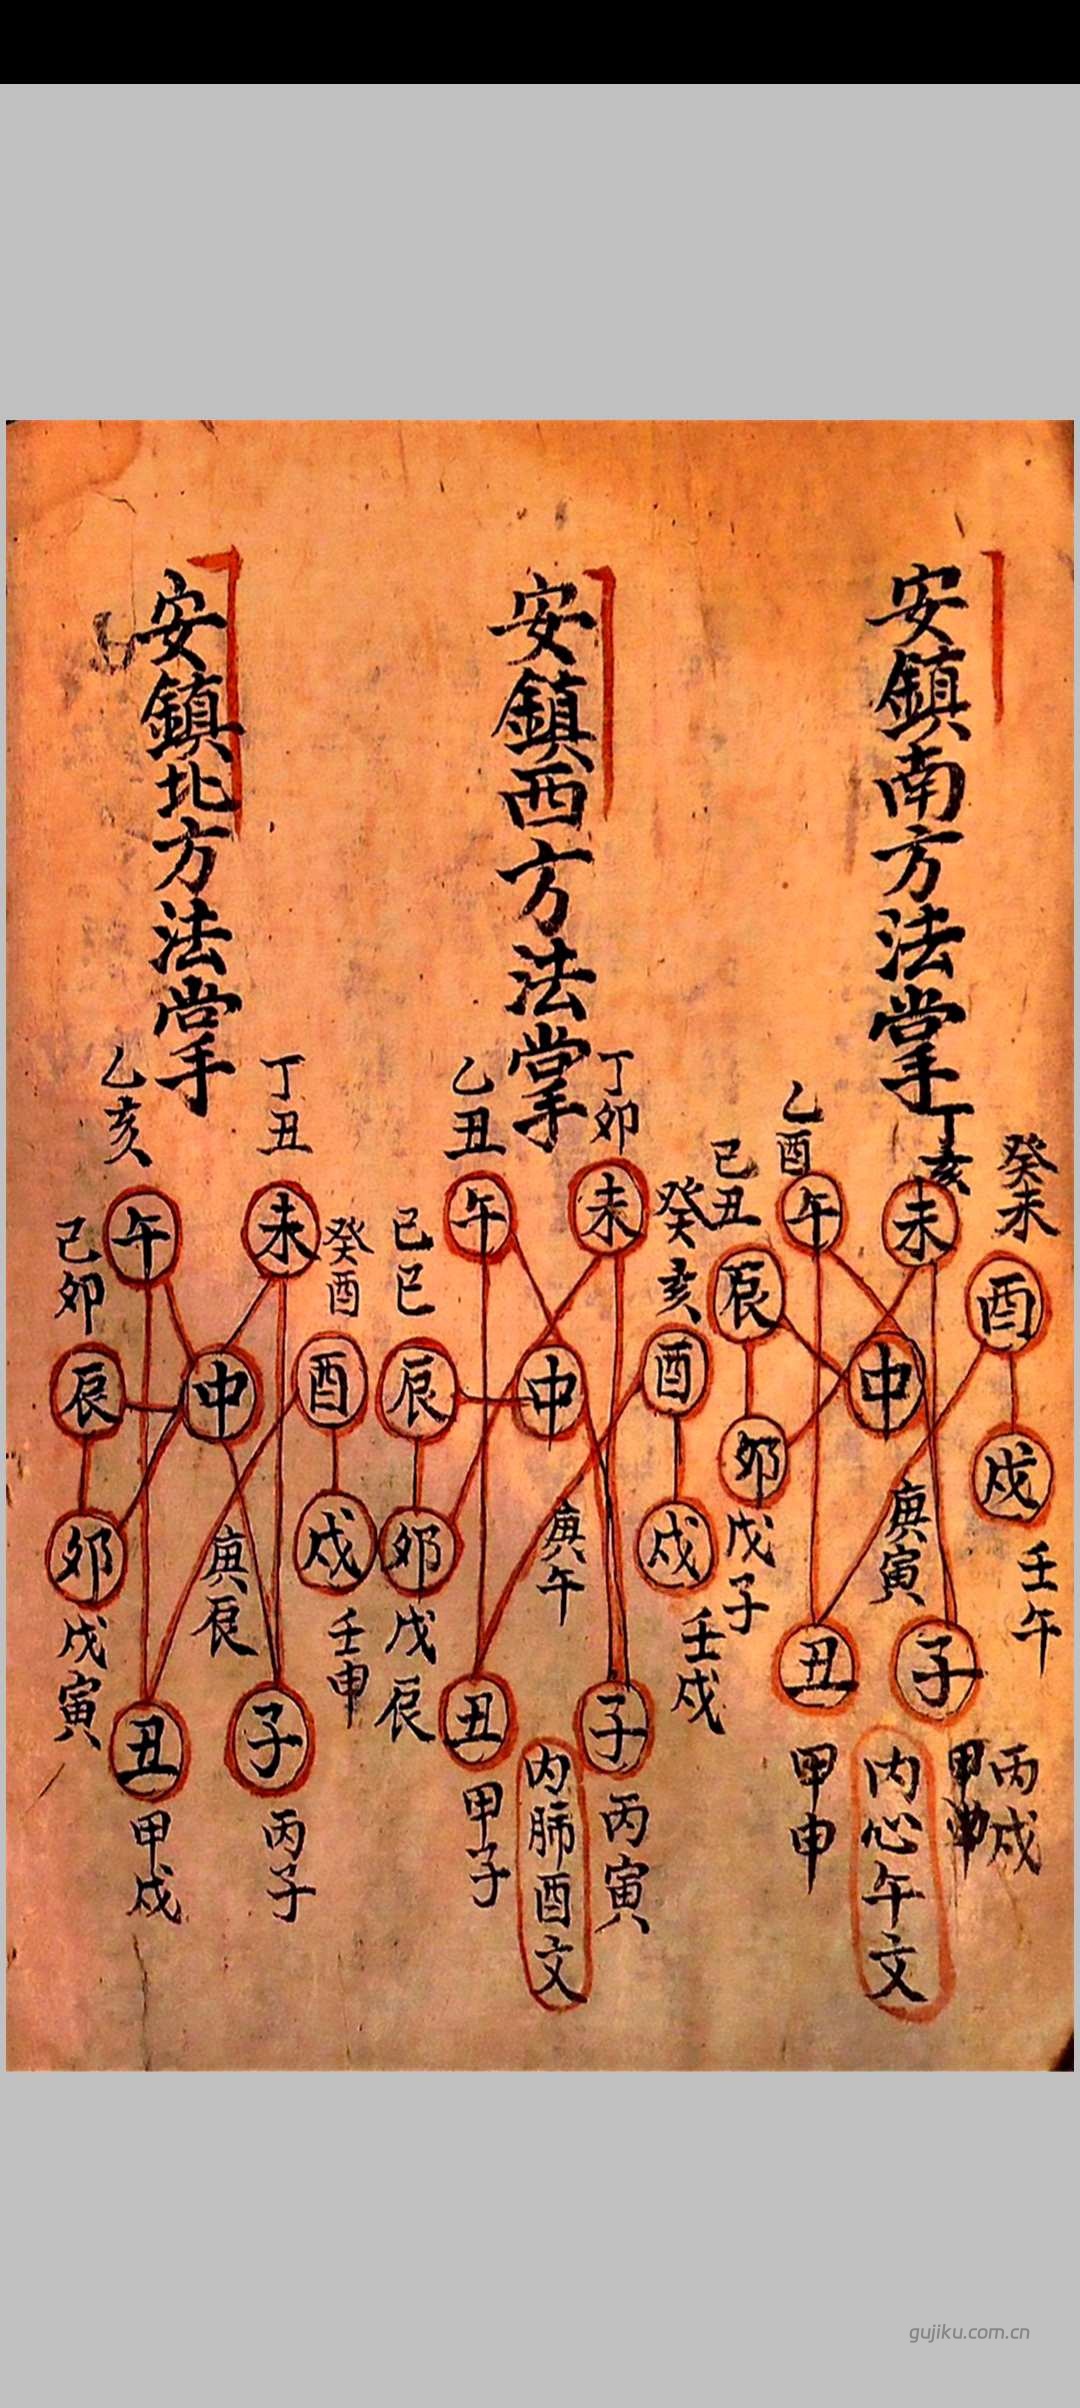 安鎮南方法掌
癸未
丁亥
乙酉
己丑
午
未
酉
辰
中
卯
戌
庚寅
戊子
壬午
丑
子
甲申
内心午文
丙戌
安鎮西方法掌
丁卯
乙丑
癸亥
己巳
午
未
辰
中
酉
卯
戌
庚午
戊辰
壬戌
丑
子
甲子
内肺酉文
丙寅
安鎮北方法掌
丁丑
乙亥
癸酉
己卯
午
未
辰
中
酉
卯
戌
庚辰
戊寅
壬申
丑
子
甲戌
丙子
gujiku.com.cn